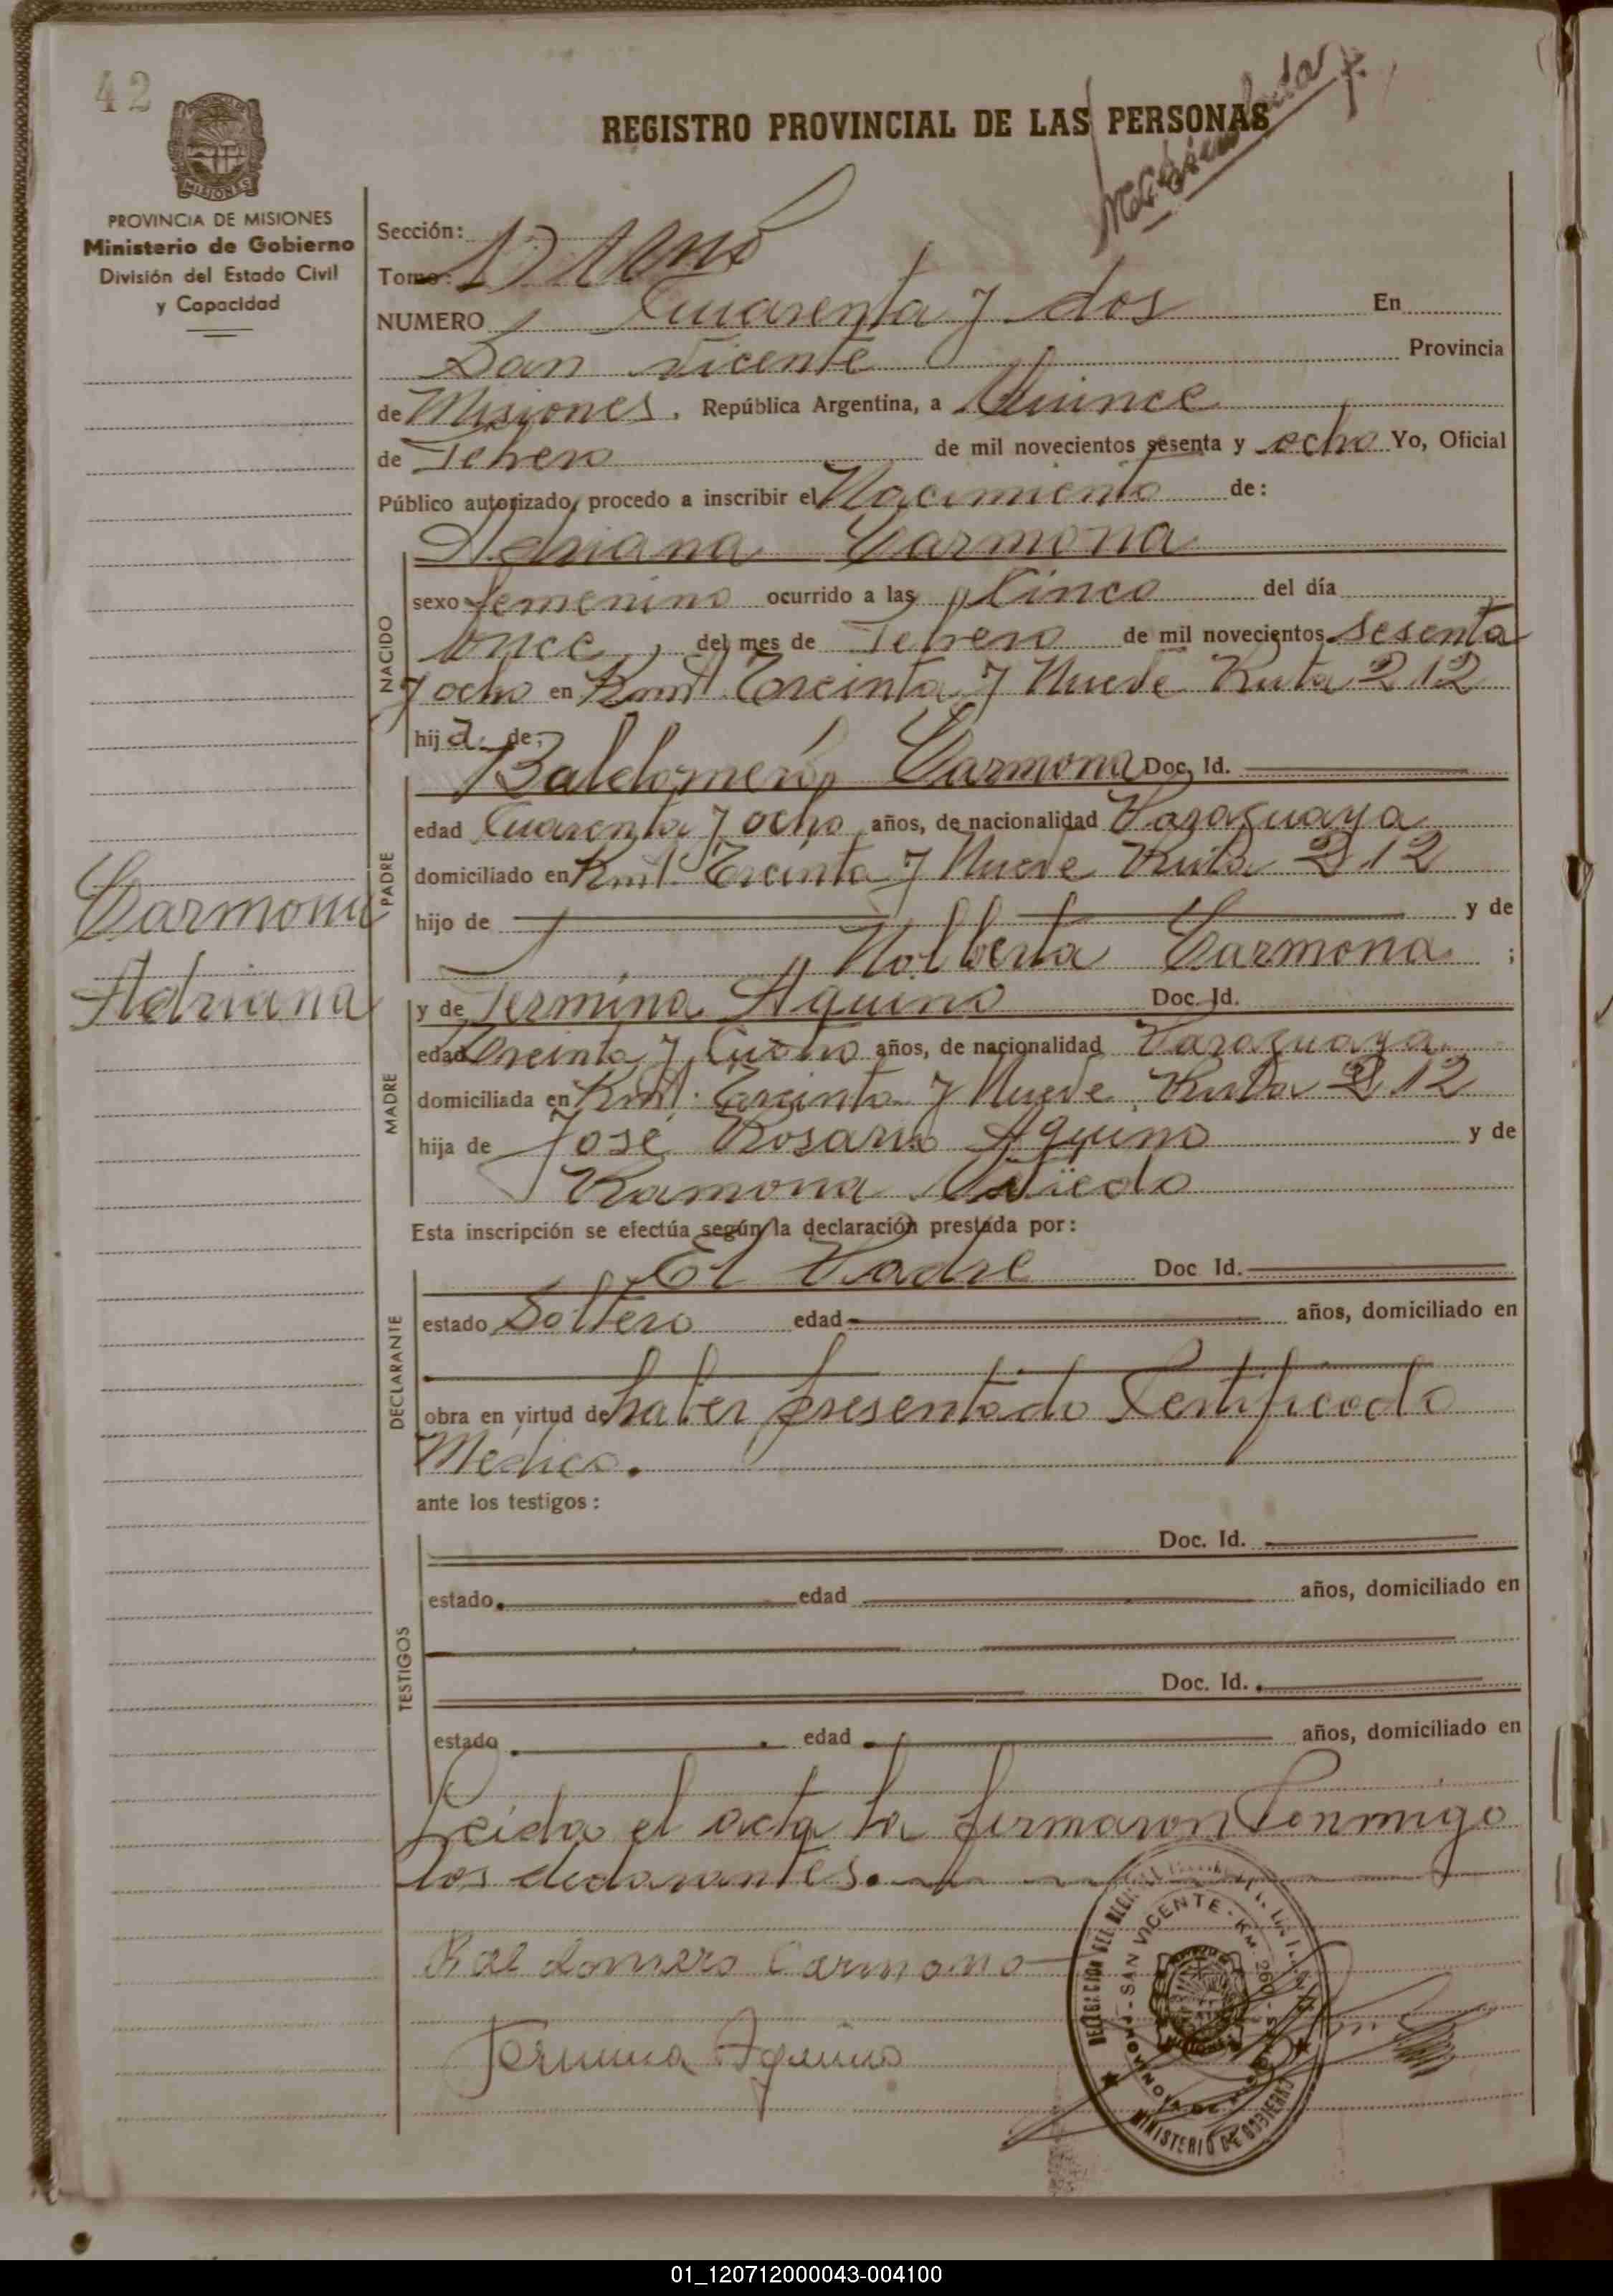 42
REGISTRO PROVINCIAL DE LAS PERSONAS
MISIONES
PROVINCIA DE MISIONES
Ministerio de Gobierno
División del Estado Civil
y Capacidad
Sección:
Tomo:
NUMERO Cuarenta y dos En
San Vicente Provincia
de Misiones, República Argentina, a Quince
de Febrero de mil novecientos sesenta y ocho Yo, Oficial
Público autorizado, procedo a inscribir el Nacimiento de:
Adriana Carmona
NACIDO
sexo femenino ocurrido a las Cinco del día
once, del mes de Febrero de mil novecientos sesenta
y ocho en Kmt. Treinta y Nueve Ruta 212
hija de:
PADRE
Baldomero Carmona Doc. Id.
edad Cuarenta y ocho años, de nacionalidad Paraguaya
domiciliado en Kmt. Treinta y Nueve Ruta 212
hijo de y de
Carmona
Adriana
Nolberta Carmona ;
MADRE
y de Fermina Aquino Doc. Id.
edad Treinta y Cuatro años, de nacionalidad Paraguaya
domiciliada en Kmt. Treinta y Nueve Ruta 212
hija de José Rosario Aquino y de
Ramona
Esta inscripción se efectúa según la declaración prestada por:
DECLARANTE
El Padre Doc Id.
estado Soltero edad años, domiciliado en
obra en virtud de haber presentado Certificado
Medico.
ante los testigos:
TESTIGOS
Doc. Id.
estado edad años, domiciliado en
Doc. Id.
estado edad años, domiciliado en
Leida el acta la firmaron Conmigo
los declarantes.
Baldomero Carmona
Fermina Aquino
SAN VICENTE - KM. 260
MINISTERIO DE GOBIERNO
01_120712000043-004100